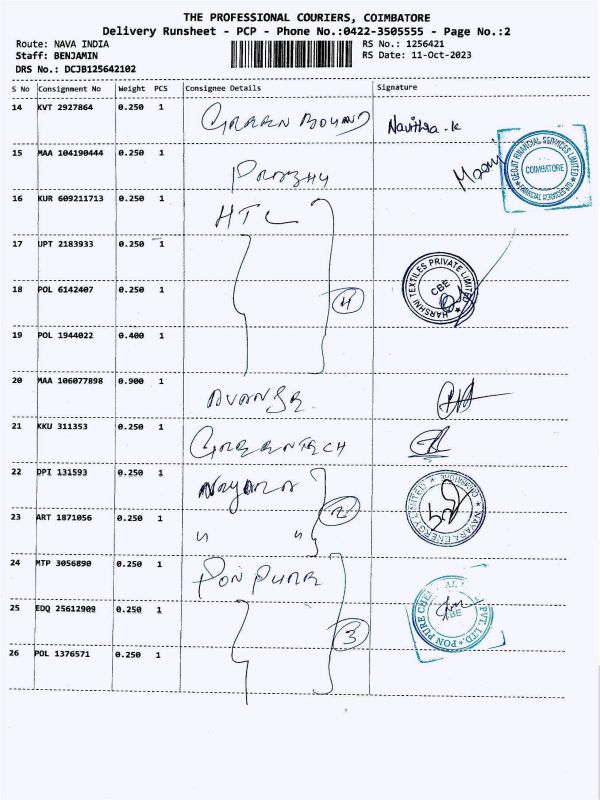 THE PROFESSIONAL COURIERS, COIMBATORE
Delivery Runsheet - PCP - Phone No.:0422-3505555 - Page No.:2
Route: NAVA INDIA
Staff: BENJAMIN
DRS No.: DCJB125642102
RS No.: 1256421
RS Date: 11-Oct-2023
S No Consignment No Weight PCS Consignee Details Signature
14 KVT 2927864 0.250 1 GREEN BOUND Navithra.k
15 MAA 104190444 0.250 1 PRABHU
FINANCIAL SERVICES LIMITED
COIMBATORE
16 KUR 609211713 0.250 1 HTL
17 UPT 2183933 0.250 1
18 POL 6142407 0.250 1 4
HARSHNI TEXTILES PRIVATE LIMITED
CBE
19 POL 1944022 0.400 1
20 MAA 106077898 0.900 1
21 KKU 311353 0.250 1 GREENTECH
22 DPI 131593 0.250 1 Nayara
23 ART 1871056 0.250 1 " " 2
NAYARA ENERGY LIMITED
24 MTP 3056890 0.250 1 PON PURE
25 EDQ 25612909 0.250 1 3
PON PURE CHEMICAL PVT. LTD.
CBE
26 POL 1376571 0.250 1